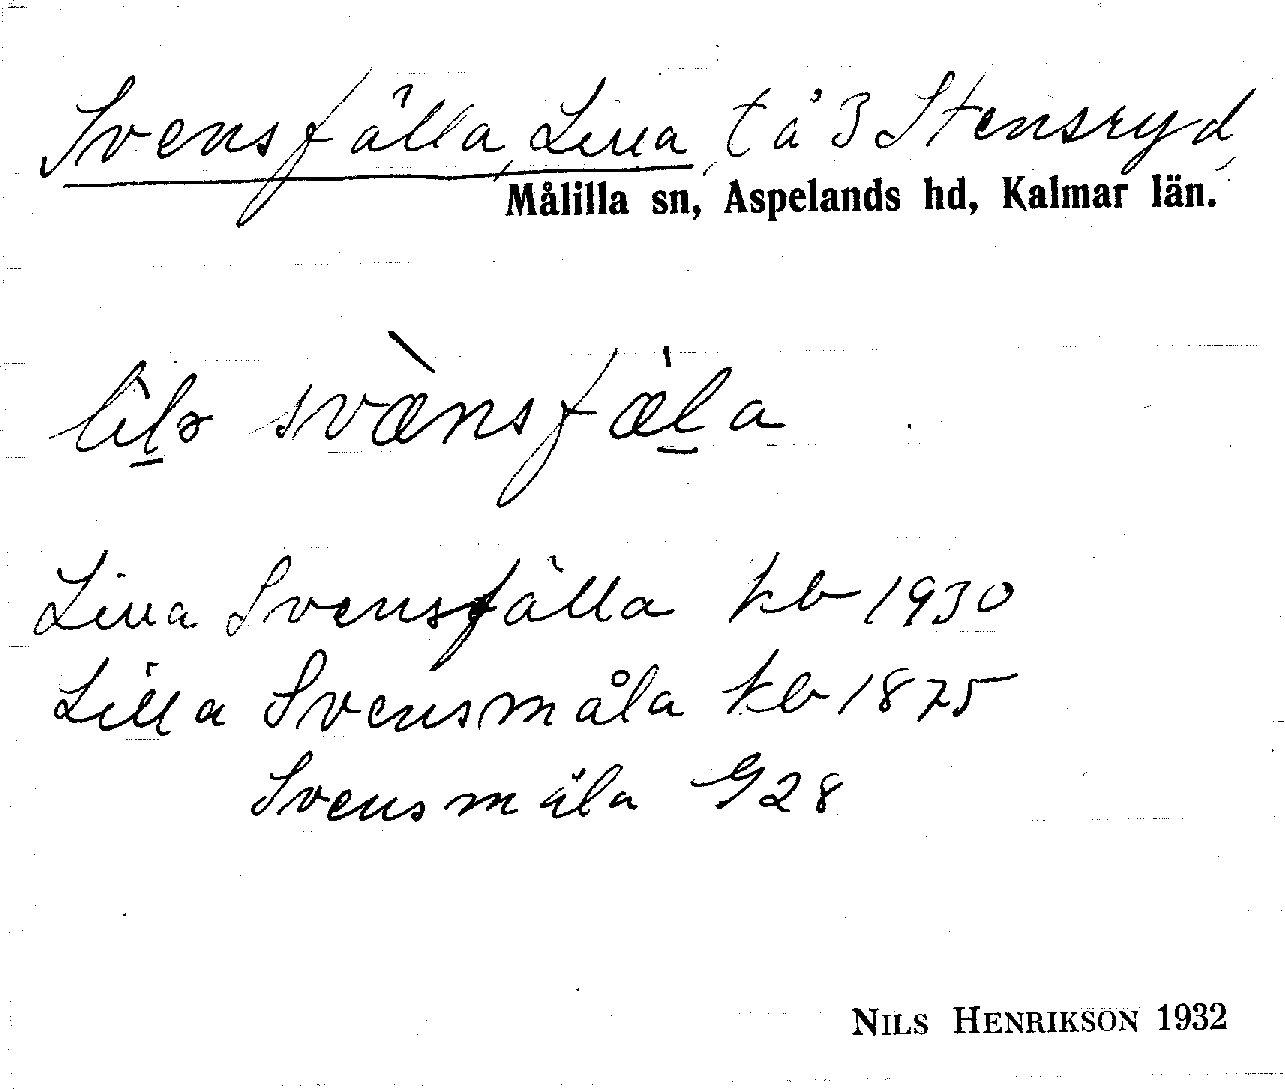 Svensfälla, Lilla, t å 3 Stensryd,
Målilla sn, Aspelands hd, Kalmar län.
svæ̀nsfæ̀l̲a
Lilla Svensfälla kb 1930
Lilla Svensmåla kb 1875
Svensmåla G28
NILS HENRIKSON 1932